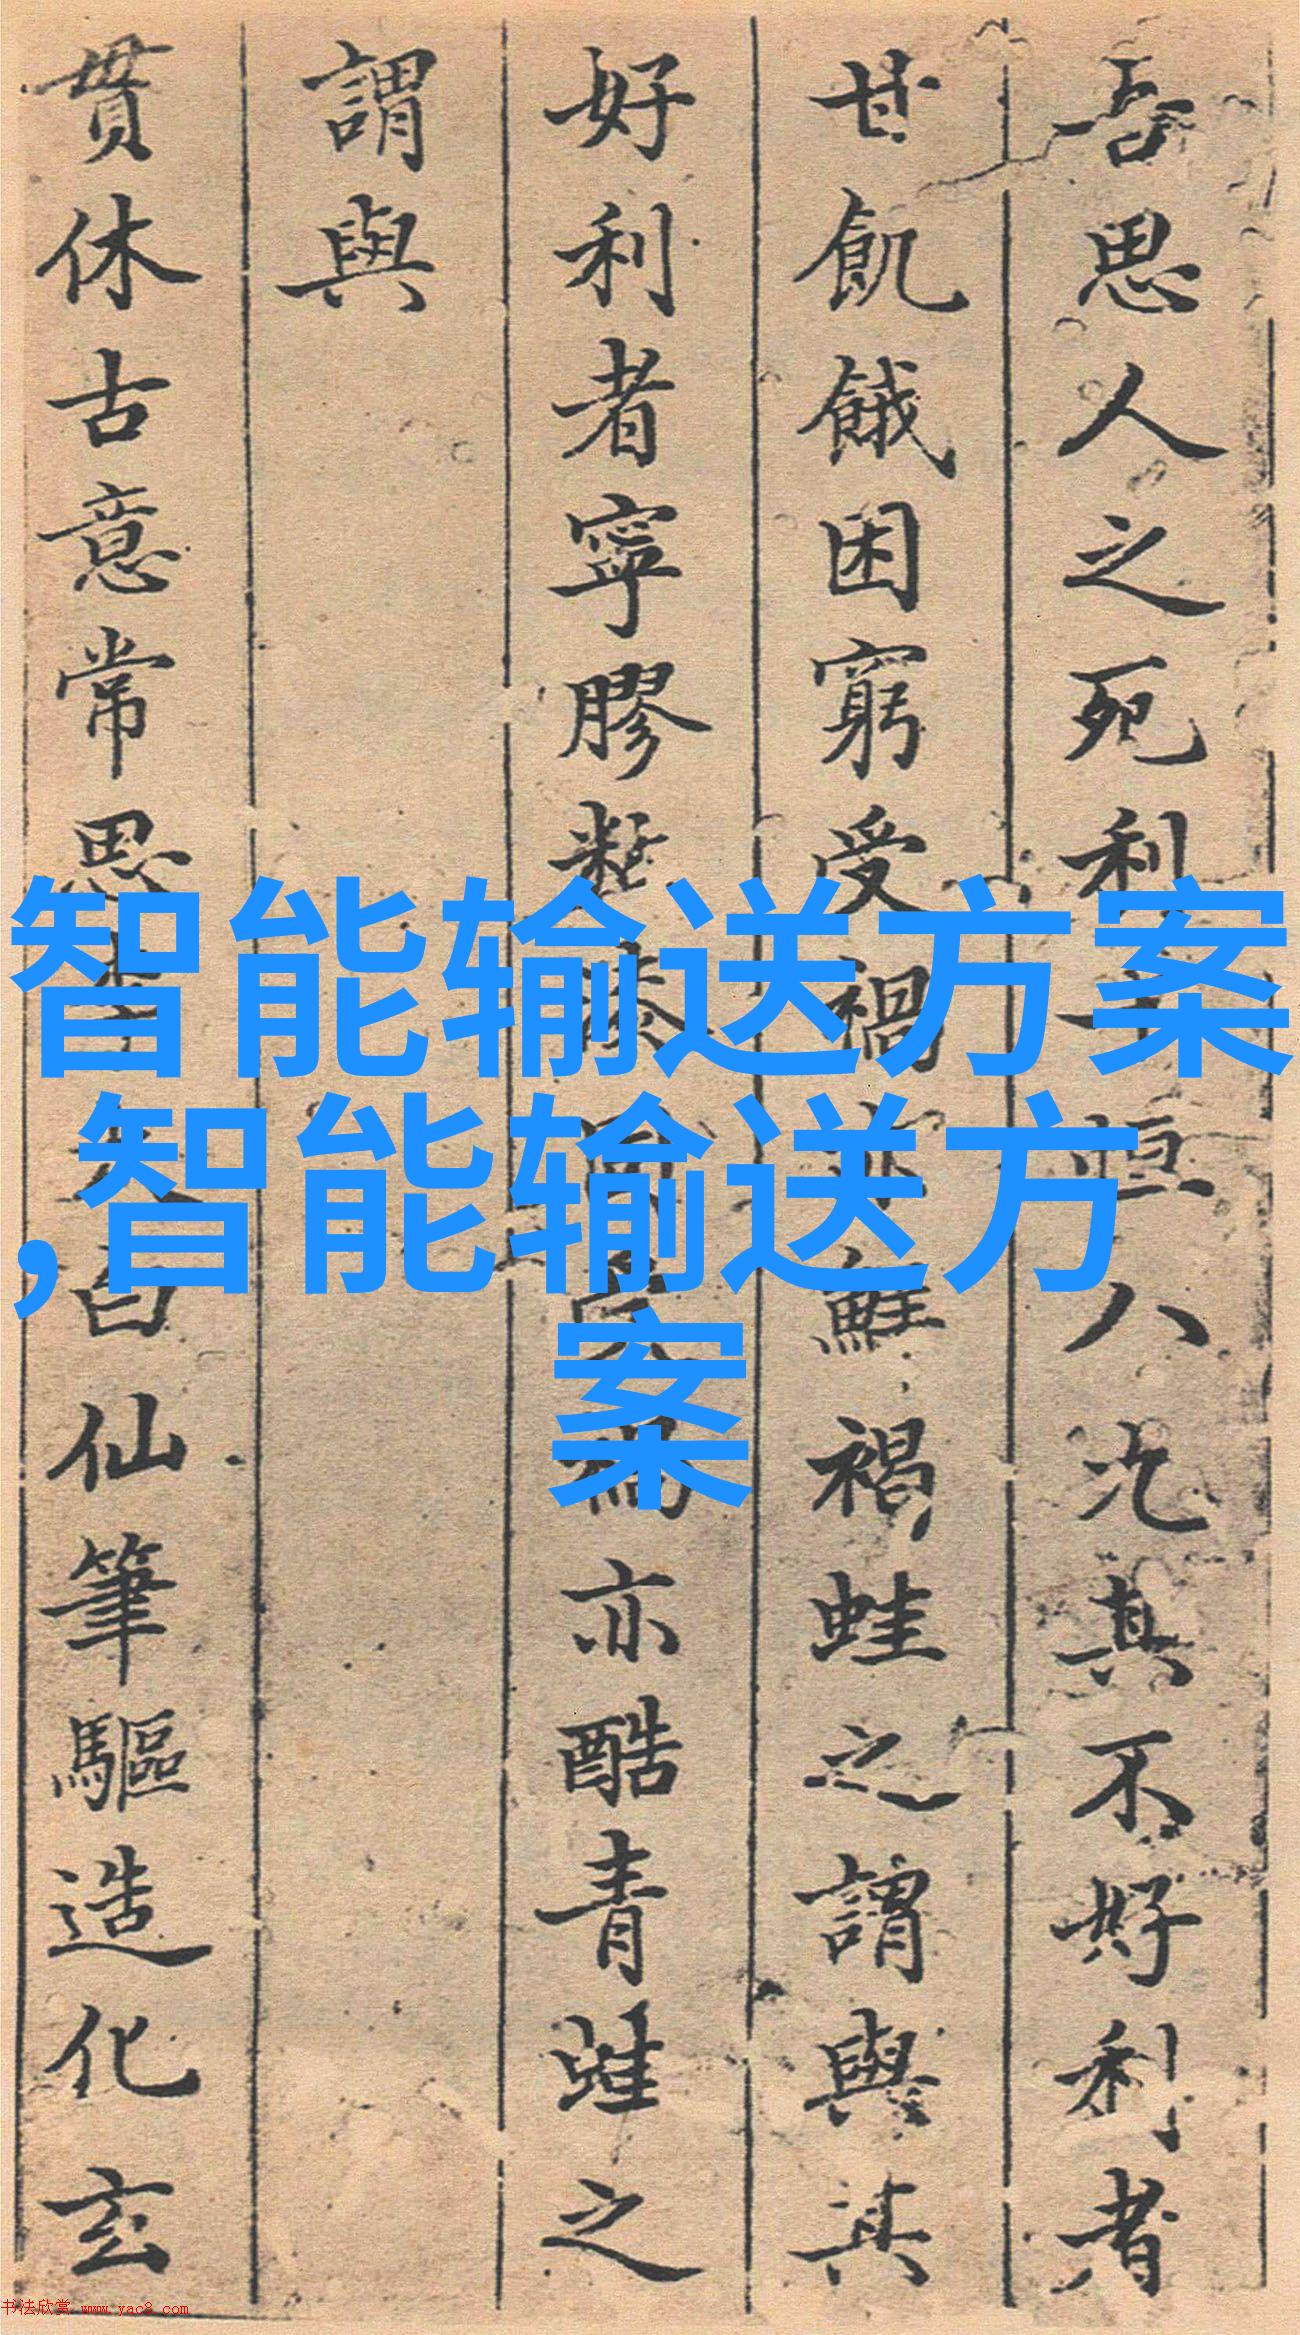 吾思人之死利恒八其不好利者
甘飢餓困窮受禍鮭褐蛙之謂與其
好利者寧膠亦酷青蛙之
謂與
貫休古意常思白仙筆驅造化玄
智能输送方案
,智能输送方
案
书法欣赏 www.yac8.com